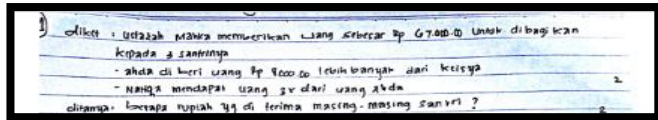 1) diket : ustazah Mahka memberikan uang sebesar Rp 67.000.00 untuk dibagikan
kepada 3 santrinya
- ahda di beri uang Rp 8000.00 lebih banyak dari keisya
- Naiqa mendapat uang 3x dari uang ahda
2
ditanya : berapa rupiah yg di terima masing-masing santri ?
2